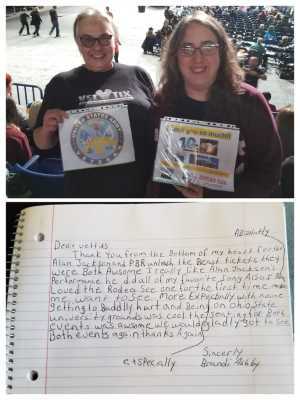 VET TIX
UNITED STATES ARMY
Absolutly
Dear vettix
Thank you from the Bottom of my heart for the
Alan Jackson and PBR unleash the Beast tickets they
were Both Awsome I really like Alan Jackson's
Performance he did all of my favorite song Also I
Loved the Rodeo See one for the first time make
me want to see More Expectally with no one
getting to Baddly hurt and Being on Ohio State
university grounds was cool the seating for Both
events was awsome we would gladly got to see
Both events again thanks Again
Sincerly
Brandi Ashby
especially